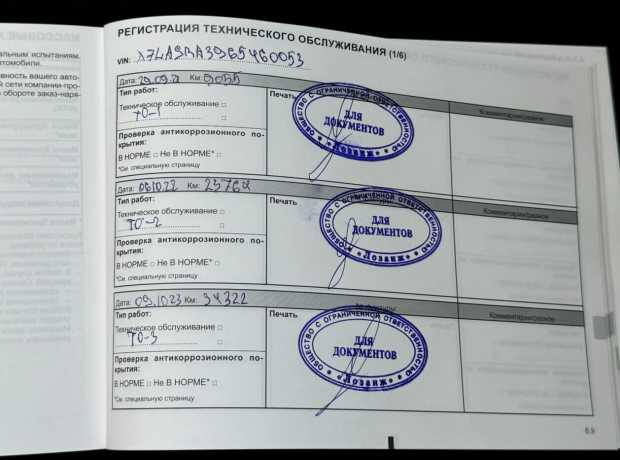 альным испытаниям,
томобили.
вность вашего авто-
й сети компании-про-
обороте заказ-наря-
РЕГИСТРАЦИЯ ТЕХНИЧЕСКОГО ОБСЛУЖИВАНИЯ (1/6)
VIN: X7LASRA3965460053
Дата: 29.09.21 Км: 9055
Комментарии/разное
Тип работ:
Печать
Техническое обслуживание □
ТО-1
Проверка антикоррозионного по-
крытия:
В НОРМЕ □ Не В НОРМЕ* □
*См. специальную страницу
ОБЩЕСТВО С ОГРАНИЧЕННОЙ ОТВЕТСТВЕННОСТЬЮ
ДЛЯ
ДОКУМЕНТОВ
«Лозанж»
Дата: 06.10.22 Км: 23764
Комментарии/разное
Тип работ:
Печать
Техническое обслуживание □
ТО-2
Проверка антикоррозионного по-
крытия:
В НОРМЕ □ Не В НОРМЕ* □
*См. специальную страницу
ОБЩЕСТВО С ОГРАНИЧЕННОЙ ОТВЕТСТВЕННОСТЬЮ
ДЛЯ
ДОКУМЕНТОВ
«Лозанж»
Дата: 09.10.23 Км: 34322
Комментарии/разное
Тип работ:
Печать
Техническое обслуживание □
ТО-3
Проверка антикоррозионного по-
крытия:
В НОРМЕ □ Не В НОРМЕ* □
*См. специальную страницу
ОБЩЕСТВО С ОГРАНИЧЕННОЙ ОТВЕТСТВЕННОСТЬЮ
ДЛЯ
ДОКУМЕНТОВ
«Лозанж»
6.9